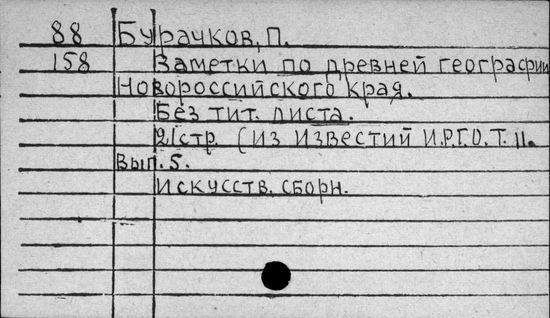 88 Бурачков, П.
158 Заметки по древней географии
Новороссийского края.
Без тит. листа.
21 стр. (из известий И.Р.Г.О. Т. 11.
Вып. 5.
Искусств. сборн.